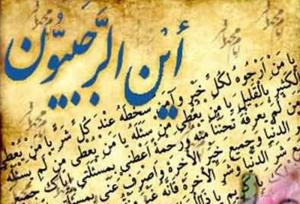 أَيْنَ الرَّجَبِيُّونَ
يَا مَنْ أَرْجُوهُ لِكُلِّ خَيْرٍ وَآمَنُ سَخَطَهُ عِنْدَ كُلِّ شَرٍّ يَا مَنْ يُعْطِي
الْكَثِيرَ بِالْقَلِيلِ يَا مَنْ يُعْطِي مَنْ سَئَلَهُ يَا مَنْ يُعْطِي مَنْ لَمْ يَسْئَلْهُ
وَمَنْ لَمْ يَعْرِفْهُ تَحَنُّنًا مِنْهُ وَرَحْمَةً أَعْطِنِي بِمَسْئَلَتِي إِيَّاكَ جَمِيعَ
خَيْرِ الدُّنْيَا وَجَمِيعَ خَيْرِ الْآخِرَةِ وَاصْرِفْ عَنِّي بِمَسْئَلَتِي
شَرِّ الدُّنْيَا وَشَرِّ الْآخِرَةِ فَإِنَّهُ غَيْرُ